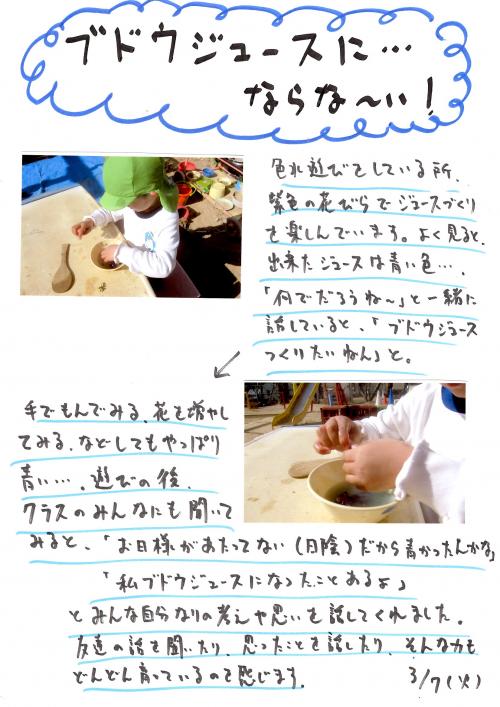 ブドウジュースに…
ならな～い！
色水遊びをしている所、
紫色の花びらでジュースづくり
を楽しんでいます。よく見ると、
出来たジュースは青い色…。
「何でだろうね～」と一緒に
話していると、「ブドウジュース
つくりたいねん」と。
手でもんでみる、花を増やし
てみる、などしてもやっぱり
青い…。遊びの後、
クラスのみんなにも聞いて
みると、「お日様があたってない(日陰)だから青かったんかな」
「私ブドウジュースになったことあるよ」
とみんな自分なりの考えや思いを話してくれました。
友達の話を聞いたり、思ったことを話したり、そんな力も
どんどん育っているのを感じます。
3/7(火)